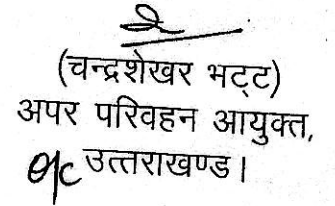 (चन्द्रशेखर भट्ट)
अपर परिवहन आयुक्त,
o/c उत्तराखण्ड।